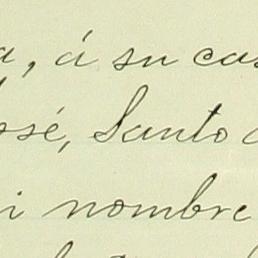 a, á su cas
osé, Santo d
i nombre